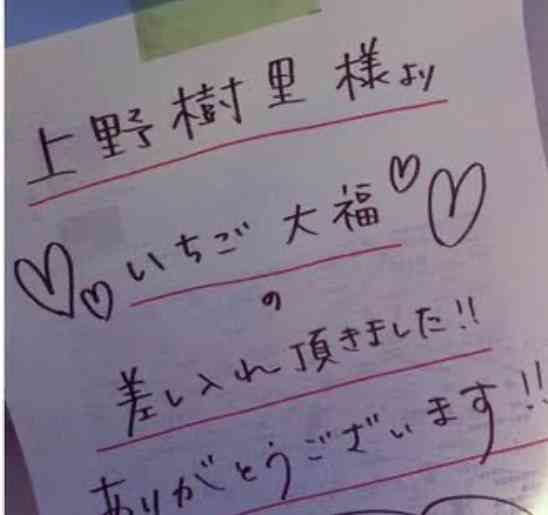 上野樹里様より
いちご大福
の
差し入れ頂きました!!
ありがとうございます!!